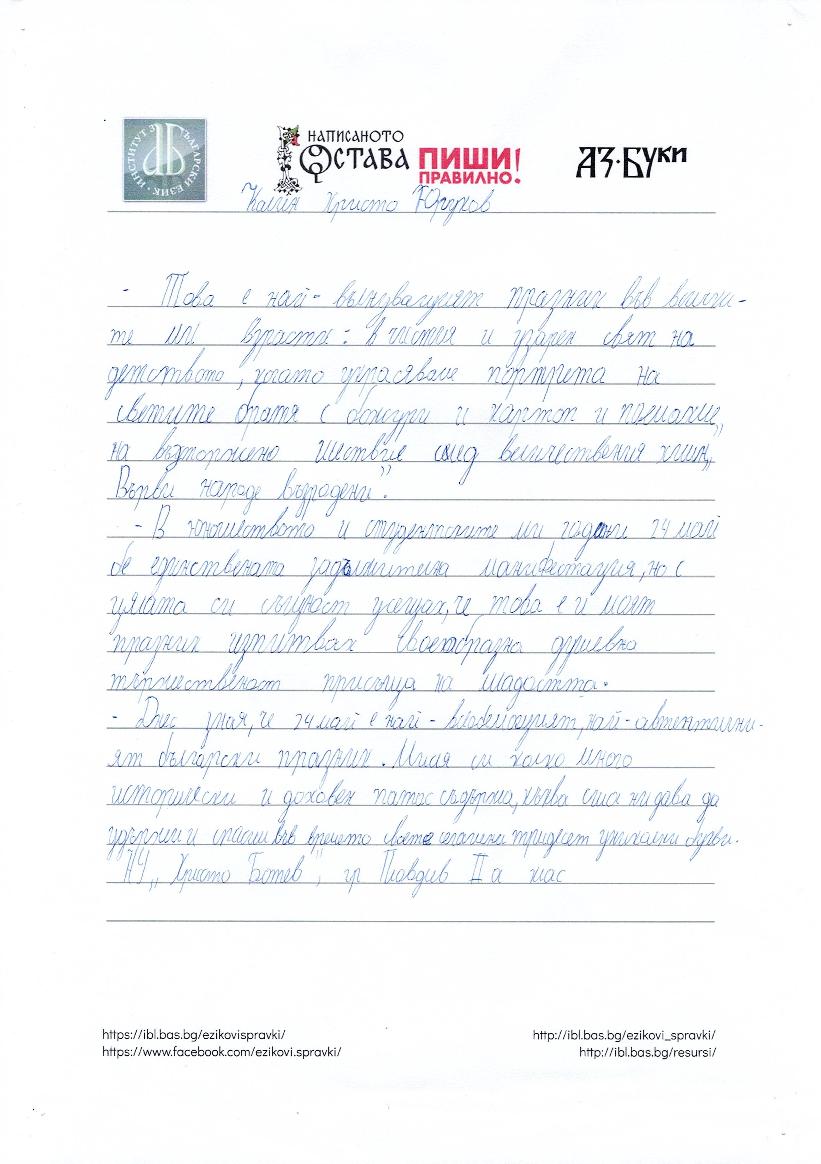 ИНСТИТУТ ЗА БЪЛГАРСКИ ЕЗИК
НАПИСАНОТО
ОСТАВА ПИШИ
ПРАВИЛНО!
АЗ·БУКИ
Калин Христо Юруков
- Това е най- вълнуващият празник във всички-
те ми възрасти: в чистия и узарен свят на
детството, когато украсяваше портрета на
светите братя с божури и картон и
на възторжено шествие след величествения химн „
Върви народе възродени".
- В юношеството и студентските ми години 24 май
бе единствената задължителна манифестация, но с
цялата си същност усещах, че това е и моят
празник изпитвах своеобразна душевна
тържественост присъща на младостта.
- Днес зная, че 24 май е най- автентични-
ят български празник. Мисля си колко много
исторически и доховен патос съдържа, каква сила ни дава да
и спасим във времето своете тридесет уникални букви.
НУ „ Христо Ботев", гр Пловдив II а клас
https://ibl.bas.bg/ezikovispravki/
https://www.facebook.com/ezikovi.spravki/
http://ibl.bas.bg/ezikovi_spravki/
http://ibl.bas.bg/resursi/